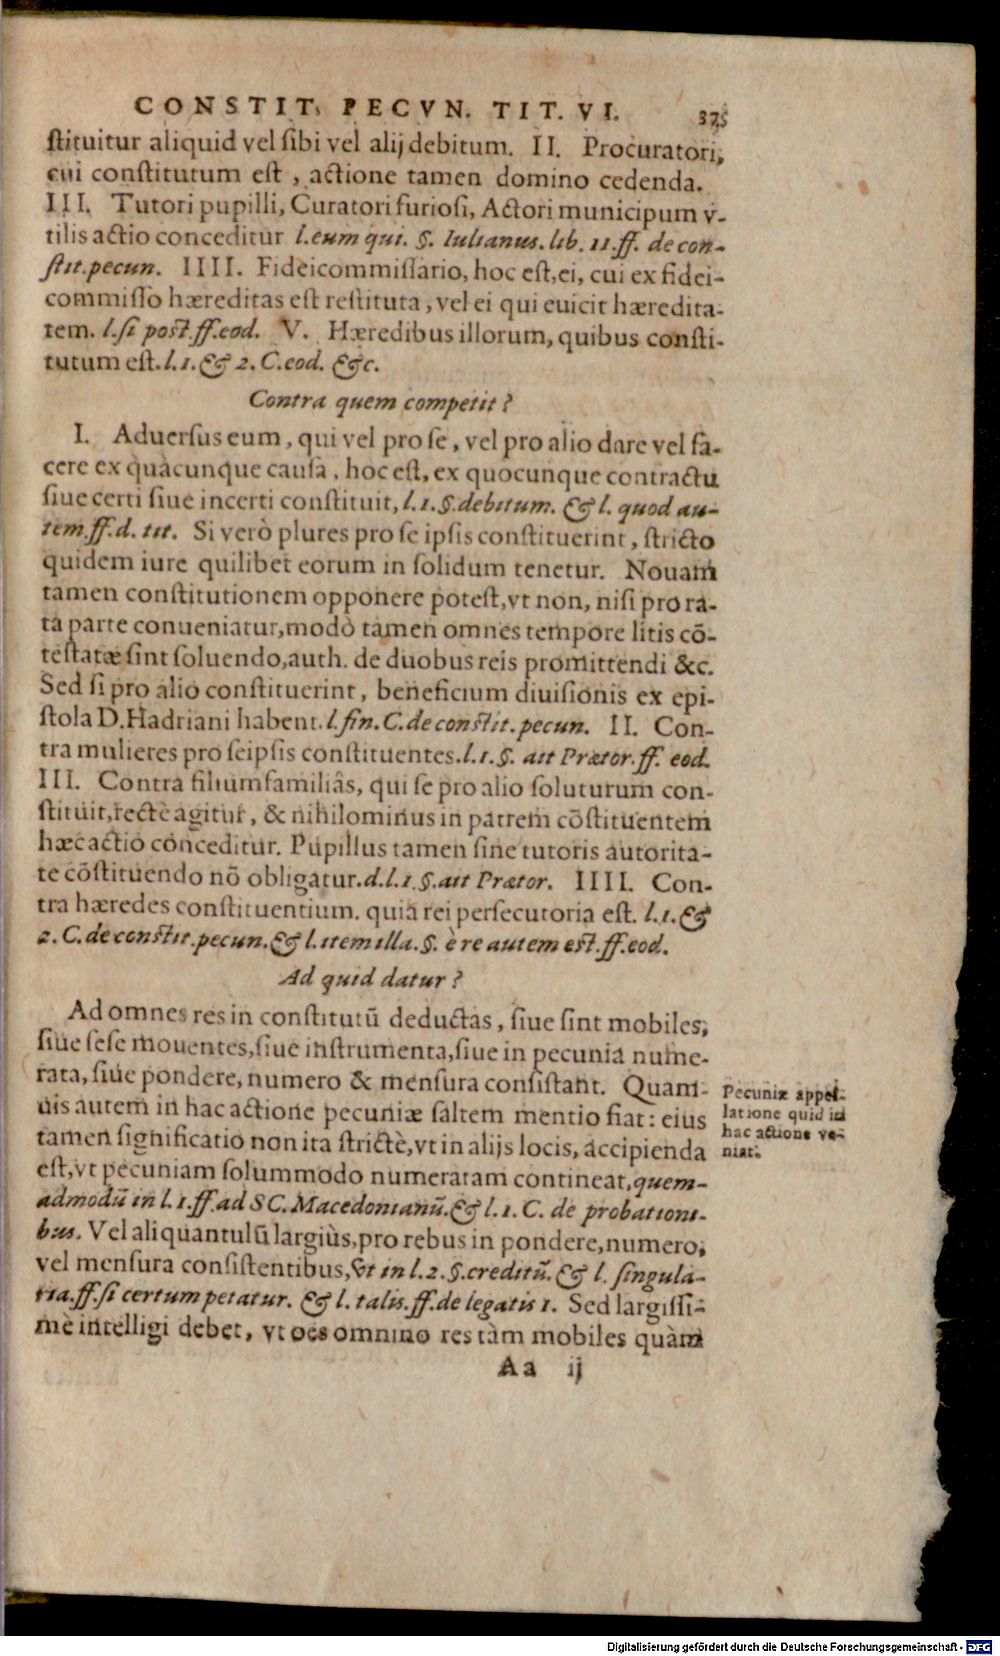 CONSTIT. PECVN. TIT. VI. 375
stituitur aliquid vel sibi vel alij debitum. II. Procuratori,
cui constitutum est, actione tamen domino cedenda.
III. Tutori pupilli, Curatori furiosi, Actori municipum v-
tilis actio conceditur l. eum qui. §. Iulianus. lib. 11. ff. de con-
stit. pecun. IIII. Fideicommissario, hoc est, ei, cui ex fidei-
commisso hæreditas est restituta, vel ei qui euicit hæredita-
tem. l. si post. ff. eod. V. Hæredibus illorum, quibus consti-
tutum est. l. 1. & 2. C. eod. &c.
Contra quem competit?
I. Aduersus eum, qui vel pro se, vel pro alio dare vel fa-
cere ex quacunque causa, hoc est, ex quocunque contractu
siue certi siue incerti constituit, l. 1. §. debitum. & l. quod au-
tem. ff. d. tit. Si verò plures pro se ipsis constituerint, stricto
quidem iure quilibet eorum in solidum tenetur. Nouam
tamen constitutionem opponere potest, vt non, nisi pro ra-
ta parte conueniatur, modò tamen omnes tempore litis cõ-
testatæ sint soluendo, auth. de duobus reis promittendi &c.
Sed si pro alio constituerint, beneficium diuisionis ex epi-
stola D. Hadriani habent. l. fin. C. de constit. pecun. II. Con-
tra mulieres pro seipsis constituentes. l. 1. §. ait Prætor. ff. eod.
III. Contra filiumfamiliâs, qui se pro alio soluturum con-
stituit, rectè agitur, & nihilominus in patrem cõstituentem
hæc actio conceditur. Pupillus tamen sine tutoris autorita-
te cõstituendo nõ obligatur. d. l. 1. §. ait Prætor. IIII. Con-
tra hæredes constituentium. quia rei persecutoria est. l. 1. &
2. C. de constit. pecun. & l. item illa. §. è re autem est. ff. eod.
Ad quid datur?
Ad omnes res in constitutũ deductas, siue sint mobiles,
siue sese mouentes, siue instrumenta, siue in pecunia nume-
rata, siue pondere, numero & mensura consistant. Quam-
uis autem in hac actione pecuniæ saltem mentio fiat: eius
tamen significatio non ita strictè, vt in alijs locis, accipienda
est, vt pecuniam solummodo numeratam contineat, quem-
admodũ in l. 1. ff. ad SC. Macedonianũ. & l. 1. C. de probationi-
bus. Vel aliquantulũ largiùs, pro rebus in pondere, numero,
vel mensura consistentibus, vt in l. 2. §. creditũ. & l. singula-
ria. ff. si certum petatur. & l. talis. ff. de legatis 1. Sed largissi-
mè intelligi debet, vt oẽs omnino res tàm mobiles quàm
Aa ij
Pecuniæ appel-
latione quid in
hac actione ve-
niat.
Digitalisierung gefördert durch die Deutsche Forschungsgemeinschaft - DFG